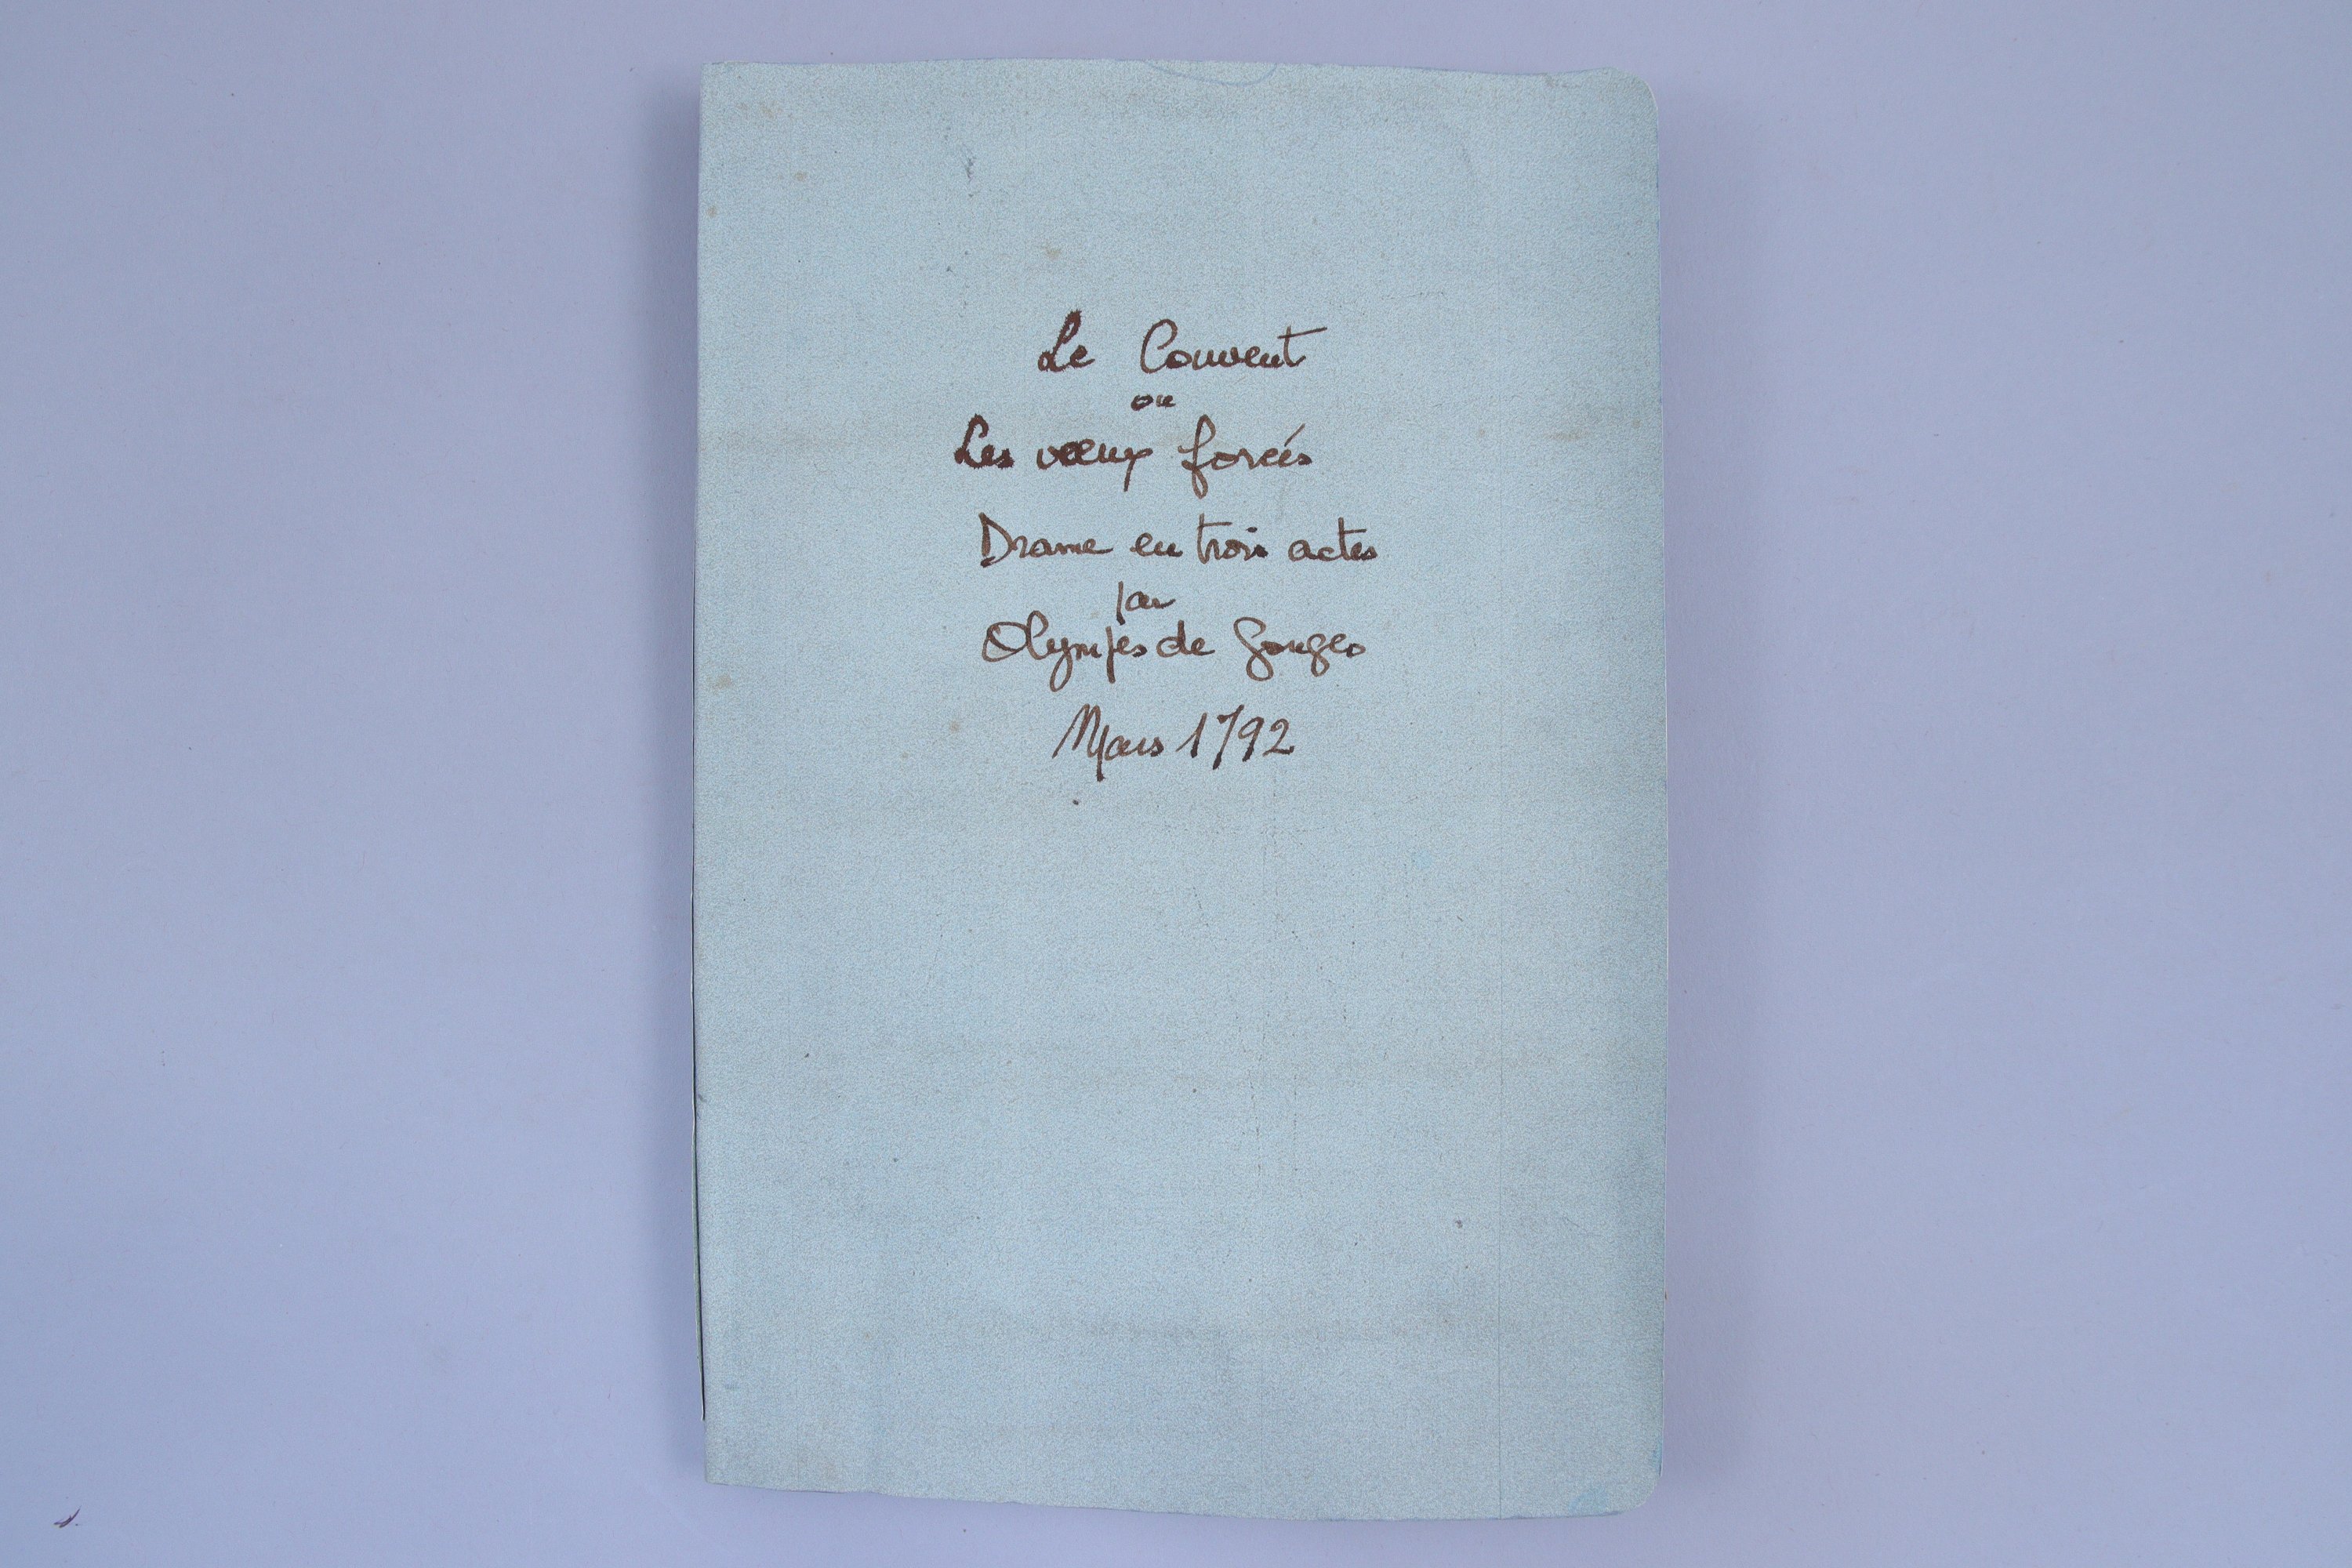 Le Couvent
ou
Les vœux forcés
Drame en trois actes
par
Olympes de Gouges
Mars 1792